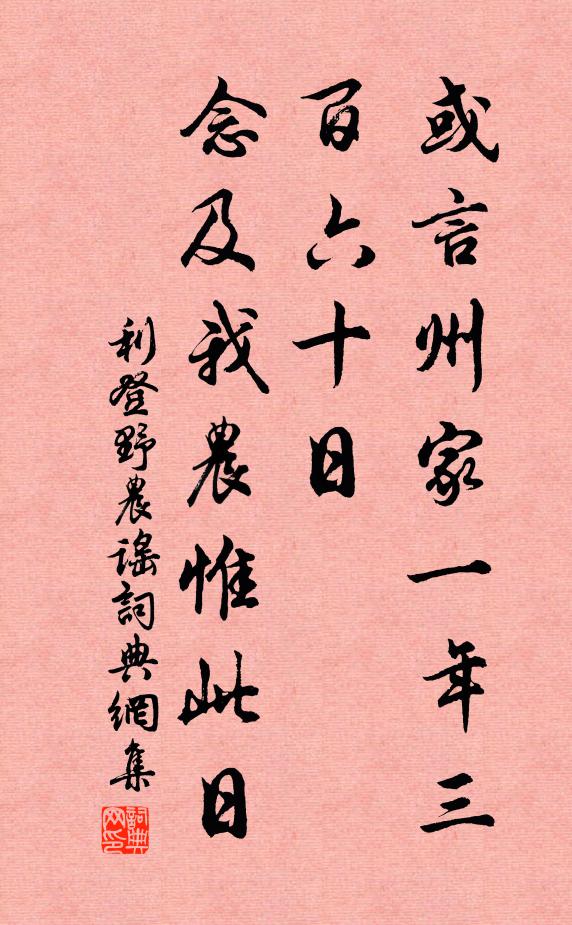 或言州家一年三
百六十日
念及我農惟此日
利登野農謠詞典網集
詞典
网印